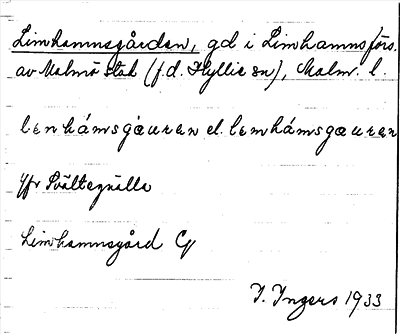 Limhamnsgården, gd i Limhamns förs.
av Malmö stad (f.d. Hyllie sn), Malm. l.
lenhámsgæuren el. lemhámsgæuren
Jfr
Limhamnsgård
I. Ingers 1933